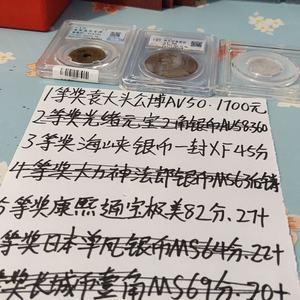 1等奖袁大头公博AU50.1700元
2等奖光绪元宝2角银币AU58360
3等奖海山夹银币一封XF45分
4等奖大力神法郎银币MS636
5等奖康熙通宝极美82分.27+
等奖日本单凤银币MS64分.22+
等奖长城币壹角MS69分.20+